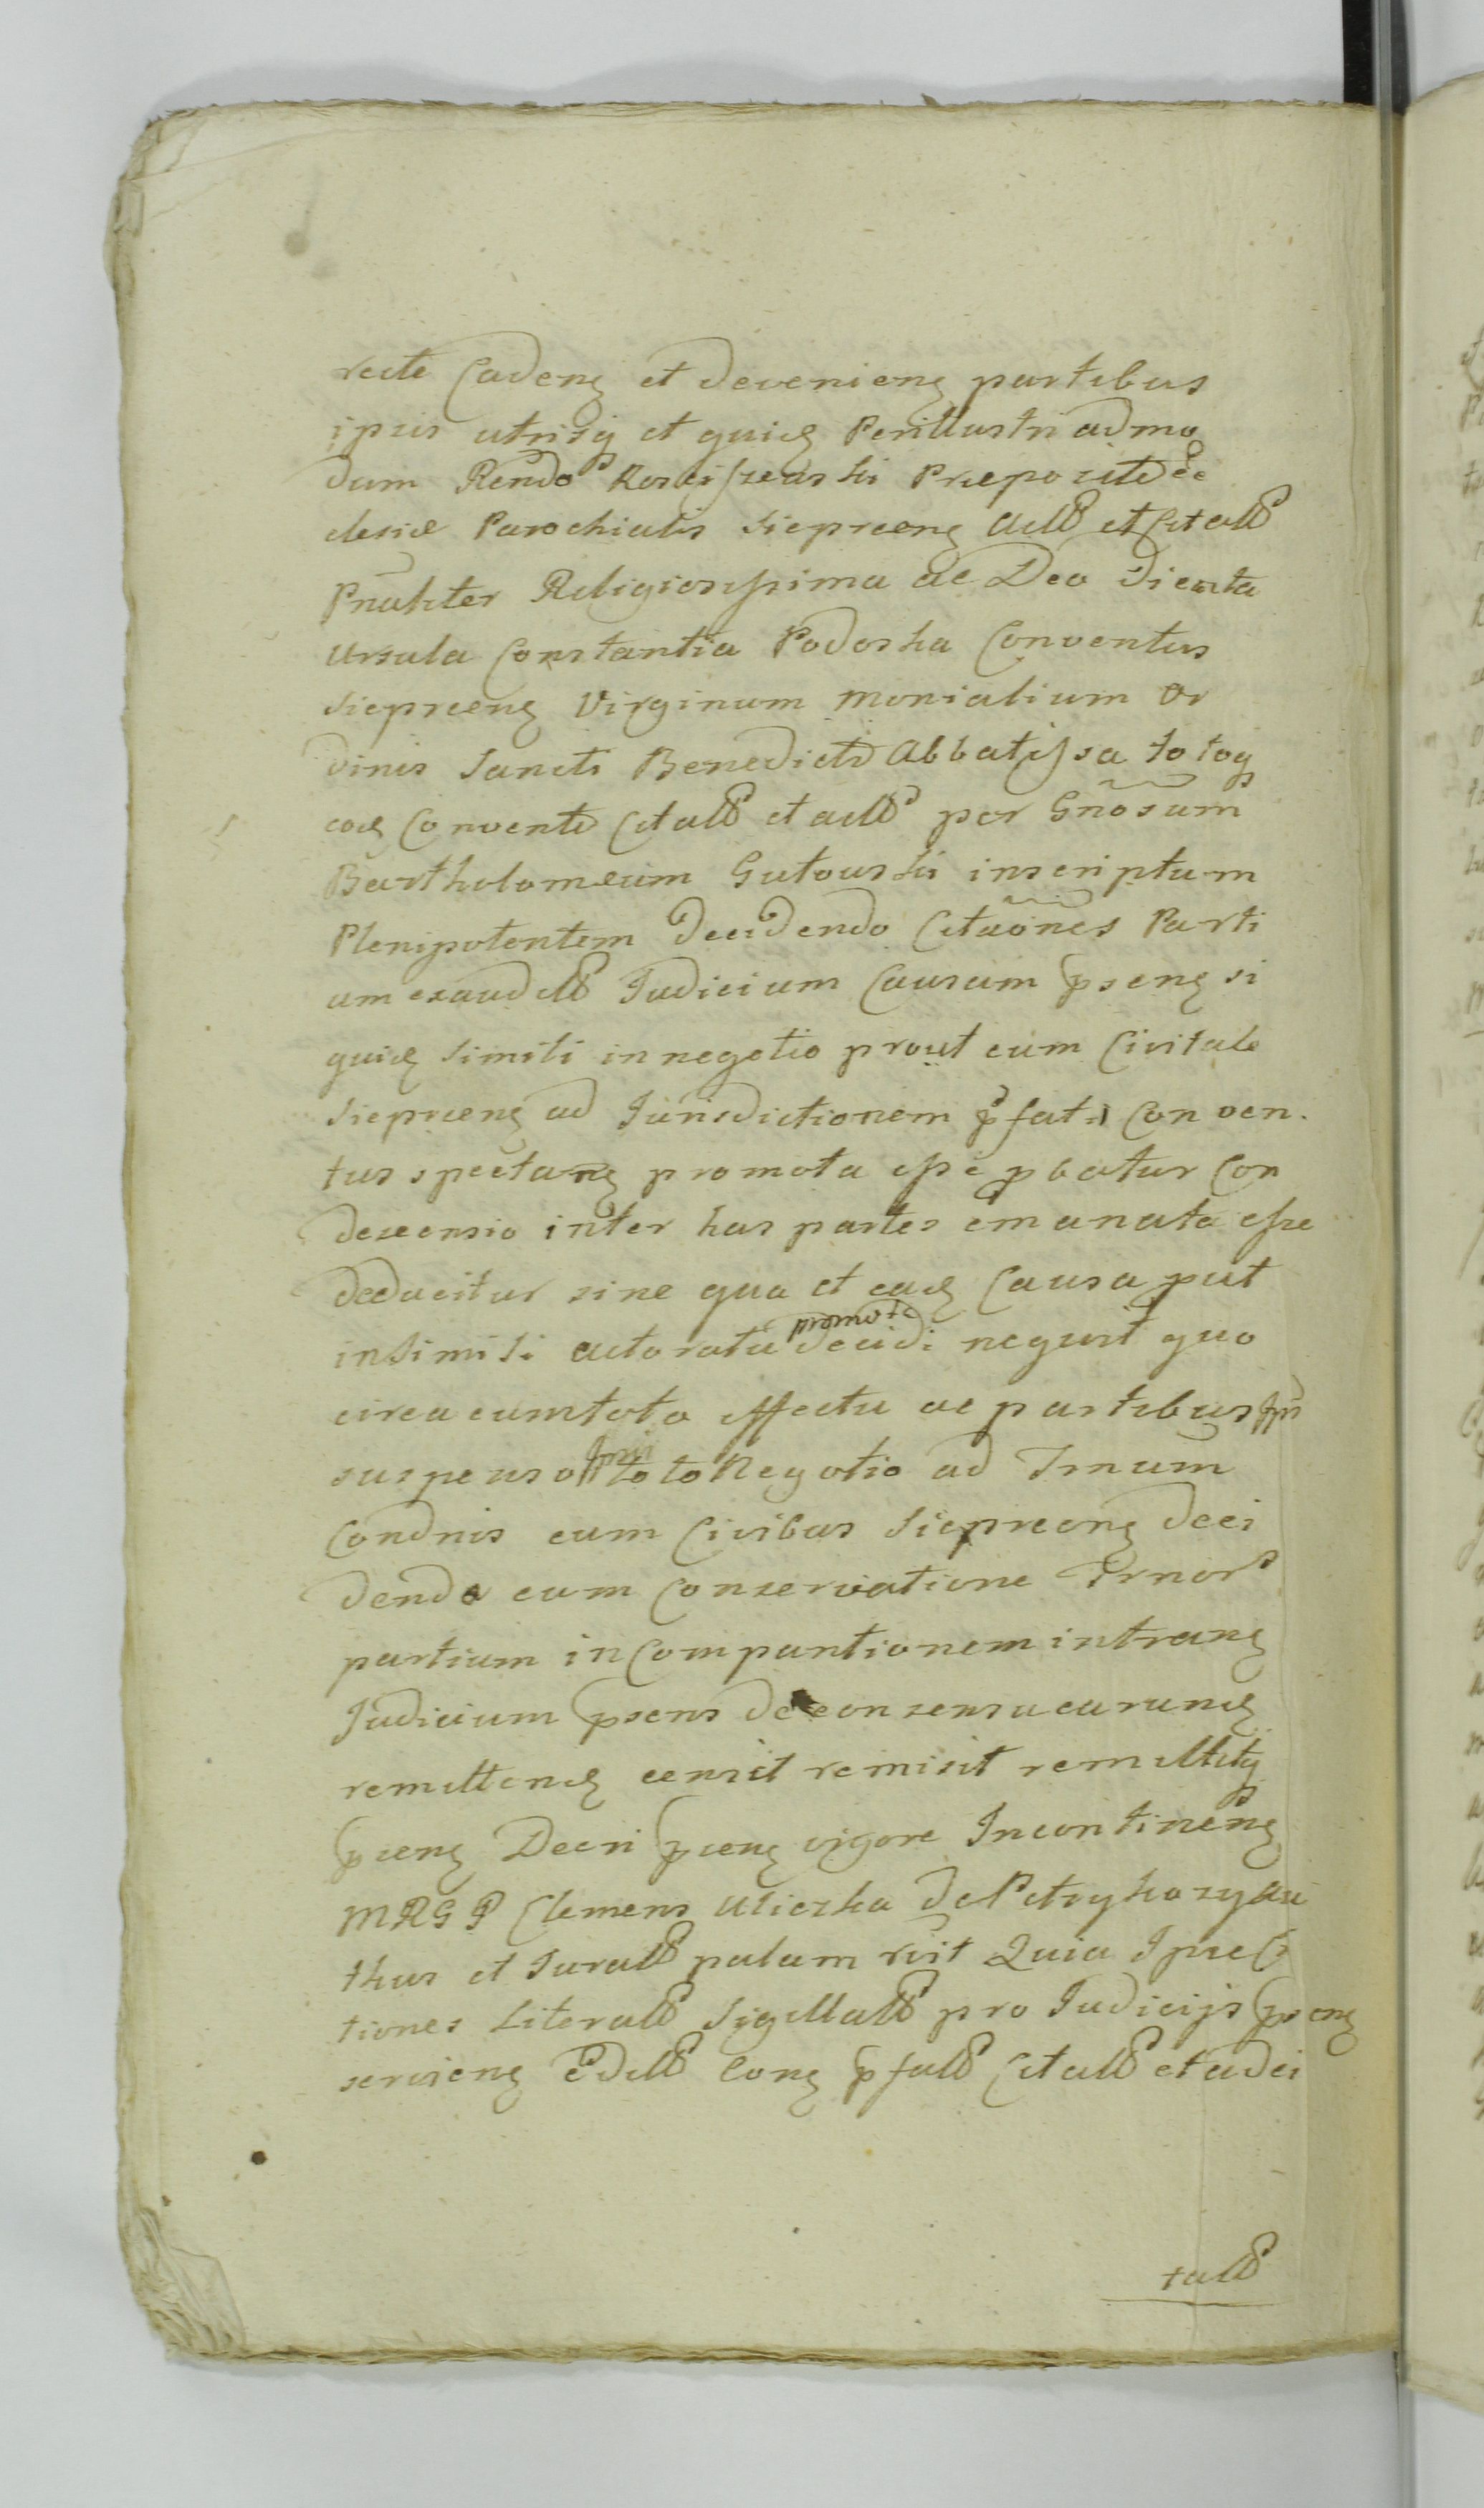 recte Cadenῳ et Devenienῳ partibus
ipsis utrisq et quidῳ Perillustri admo
dum Rendo Kosciszewski Preposito Ec
clesiæ Parochialis Siepreenῳ Actto et Citatto
Pnaliter Religiosissima ac Deo Dicata
Ursula Constantia Podoska Conventus
Siepreenῳ Virginum Monialium Or
dinis Sancti Benedicti Abbatissa totoq
eodῳ Conventu Citatto et actto per Gnosum
Bartholomeum Gutowski inscriptum
Plenipotentem Decidendo Citaones Parti
um exauditto Judicium Causam psenῳ si
quidῳ simili in negotio prout cum Civitate
Siepreenῳ ad Jurisdictionem pfati Conven.
tus spectanῳ promota esse pbatur Con
descensio inter has partes emanata esse
deducitur sine qua et eadῳ Causa put
in simili actoratu promota decidi nequit quo
circa cum toto effectu ac partibus
suspenso toto Negotio ad Trnum
Condnis cum Civibus Siepreenῳ deci
dendo cum Conservatione Trnor
partium in Compantionem intranῳ
Judicium psens de consensu earundῳ
remittendῳ censit remisit remittitq
psenῳ Decri psenῳ vigore Incontinenῳ
MRGP Clemens Uliczka de Petrykozy au
thus et Juratto palam rcit Quia Ipse C
tiones Literatto Sigillatto pro Judicijs psenῳ
servienῳ Editto Conῳ pfatto Citatto et adci
tatto